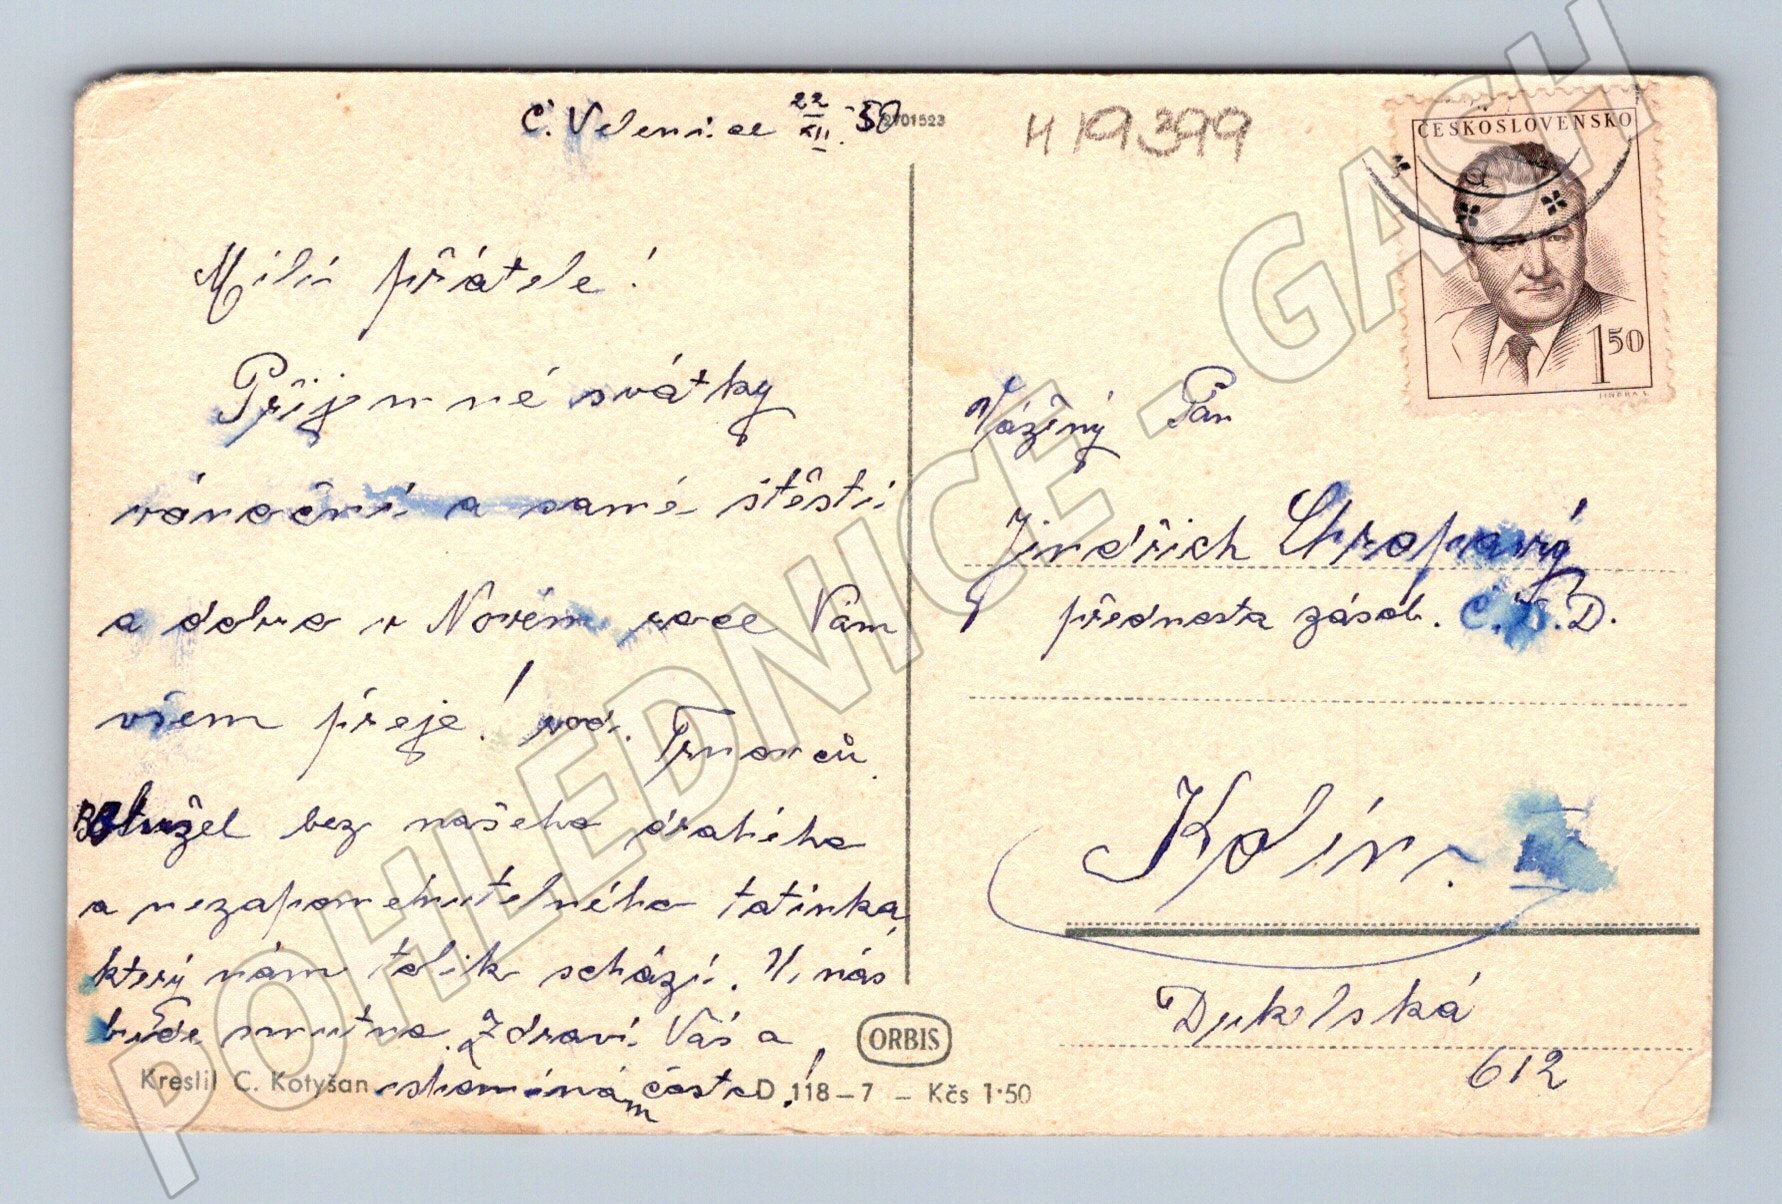 Č. Velenice 22/XII. 50
2701523
H 19399
ČESKOSLOVENSKO
1 50
JINDRA S.
Milí přátelé!
Příjemné svátky
vánoční a samé štěstí
a dobro v Novém roce Vám
všem přeje! rod. Trnavců.
Bohužel bez našeho drahého
a nezapomenutelného tatínka,
který nám tolik schází. U nás
bude smutno. Zdraví Vás a
vzpomíná často!
Vážený Pan
Jindřich Chropavý
přednosta zásob. Č.S.D.
Kolín.
Dukelská
612
ORBIS
Kreslil C. Kotyšan
D 118–7 – Kčs 1·50
POHLEDNICE - GASH